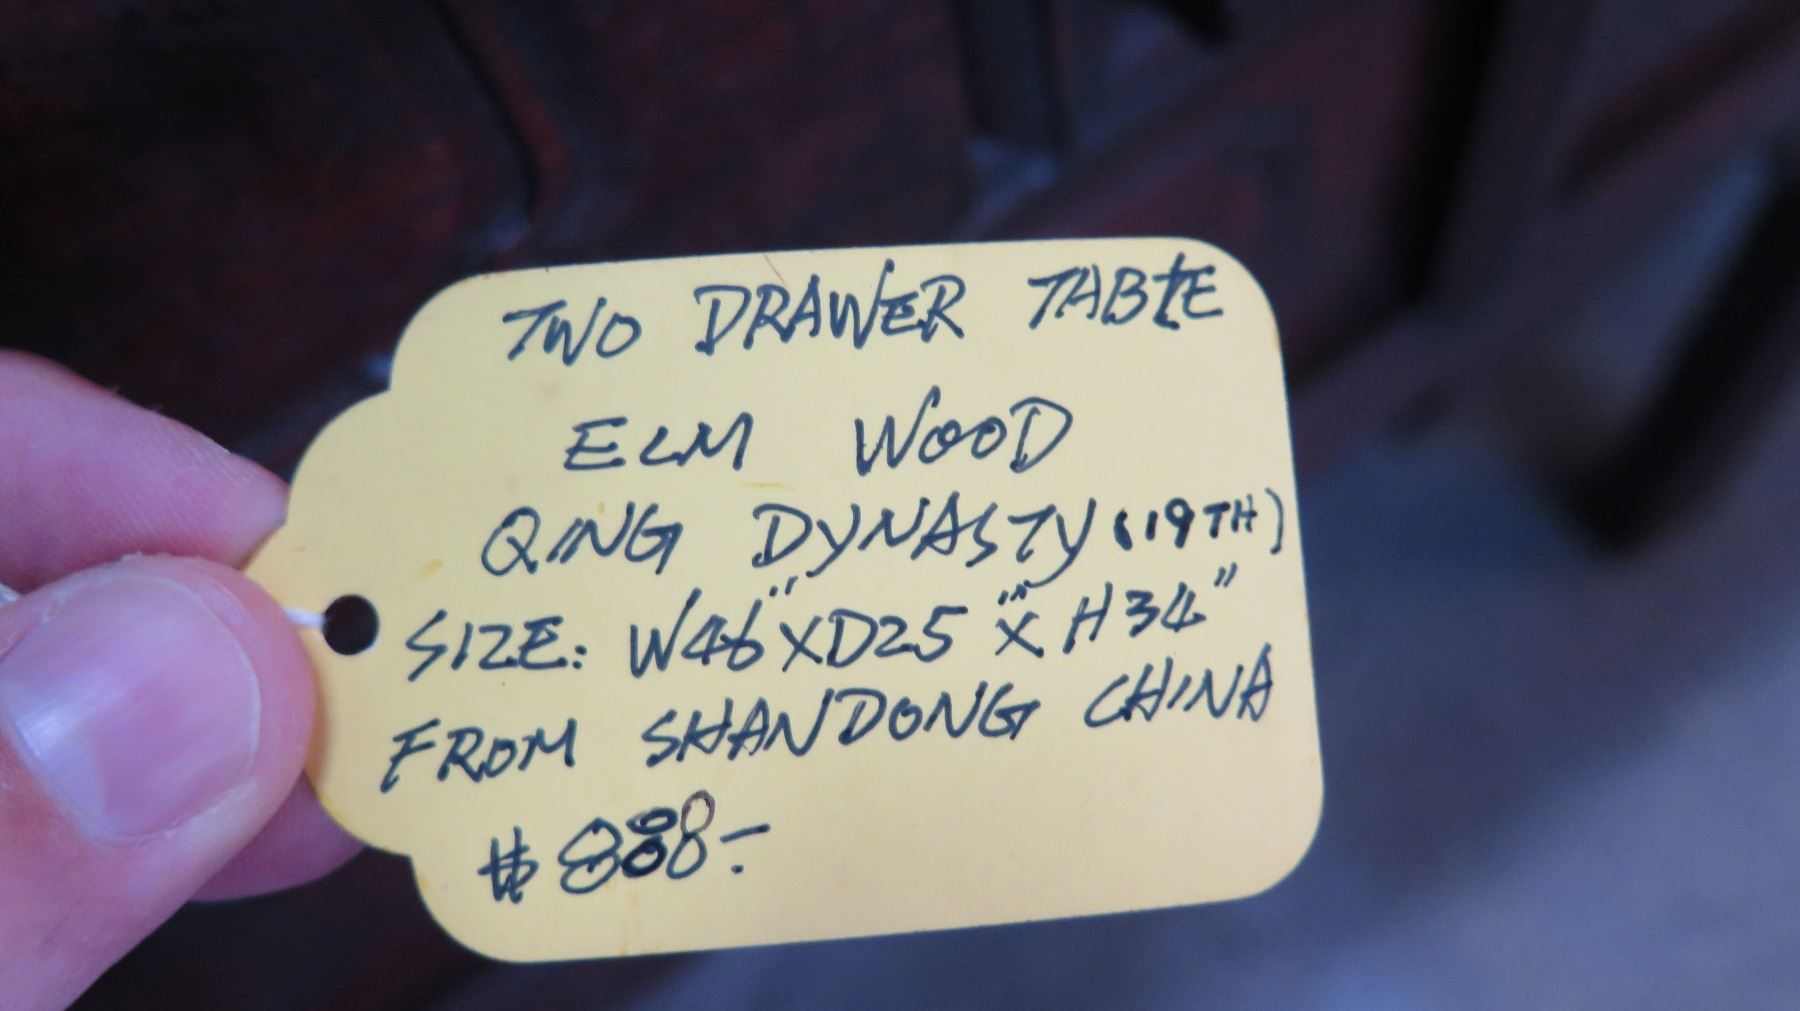 TWO DRAWER TABLE
ELM WOOD
QING DYNASTY (19TH)
SIZE: W46" X D25" X H34"
FROM SHANDONG CHINA
$888-